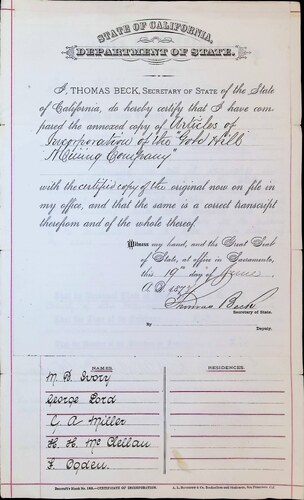 STATE OF CALIFORNIA,
DEPARTMENT OF STATE.
I, THOMAS BECK, SECRETARY OF STATE of the State
of California, do hereby certify that I have com-
pared the annexed copy of Articles of
Incorporation of the "Gold Hill
Mining Company"
with the certified copy of the original now on file in
my office, and that the same is a correct transcript
therefrom and of the whole thereof.
Witness my hand, and the Great Seal
of State, at office in Sacramento,
this 19th day of June
A. D. 1877
Thomas Beck
Secretary of State.
By
Deputy.
NAMES. RESIDENCES.
M. B. Ivory
George Lord
C. A. Miller
H. H. McClellan
F. Ogden.
CERTIFICATE OF INCORPORATION.